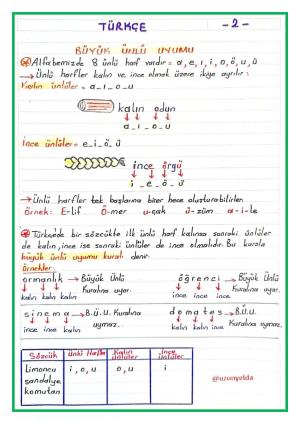 TÜRKÇE -2-
BÜYÜK ÜNLÜ UYUMU
Alfabemizde 8 ünlü harf vardır= a, e, ı, i, o, ö, u, ü
→ Ünlü harfler kalın ve ince olmak üzere ikiye ayrılır:
Kalın ünlüler= a_ı_o_u
kalın odun
a_ı_o_u
İnce ünlüler= e_i_ö_ü
ince örgü
i_e_ö_ü
→ Ünlü harfler tek başlarına birer hece oluşturabilirler.
Örnek: E-lif Ö-mer u-çak ü-züm a-i-le
Türkçede bir sözcükte ilk ünlü harf kalınsa sonraki ünlüler
de kalın, ince ise sonraki ünlüler de ince olmalıdır. Bu kurala
büyük ünlü uyumu kuralı denir.
Örnekler:
ormanlık → Büyük Ünlü Kuralına uyar.
kalın kalın kalın
öğrenci → Büyük Ünlü Kuralına uyar.
ince ince ince
sinema → B.Ü.U. Kuralına uymaz.
ince ince kalın
domates → B.Ü.U. Kuralına uymaz.
kalın kalın ince
Sözcük Ünlü Harfler Kalın ünlüler İnce ünlüler
Limoncu i, o, u o, u i
sandalye
komutan